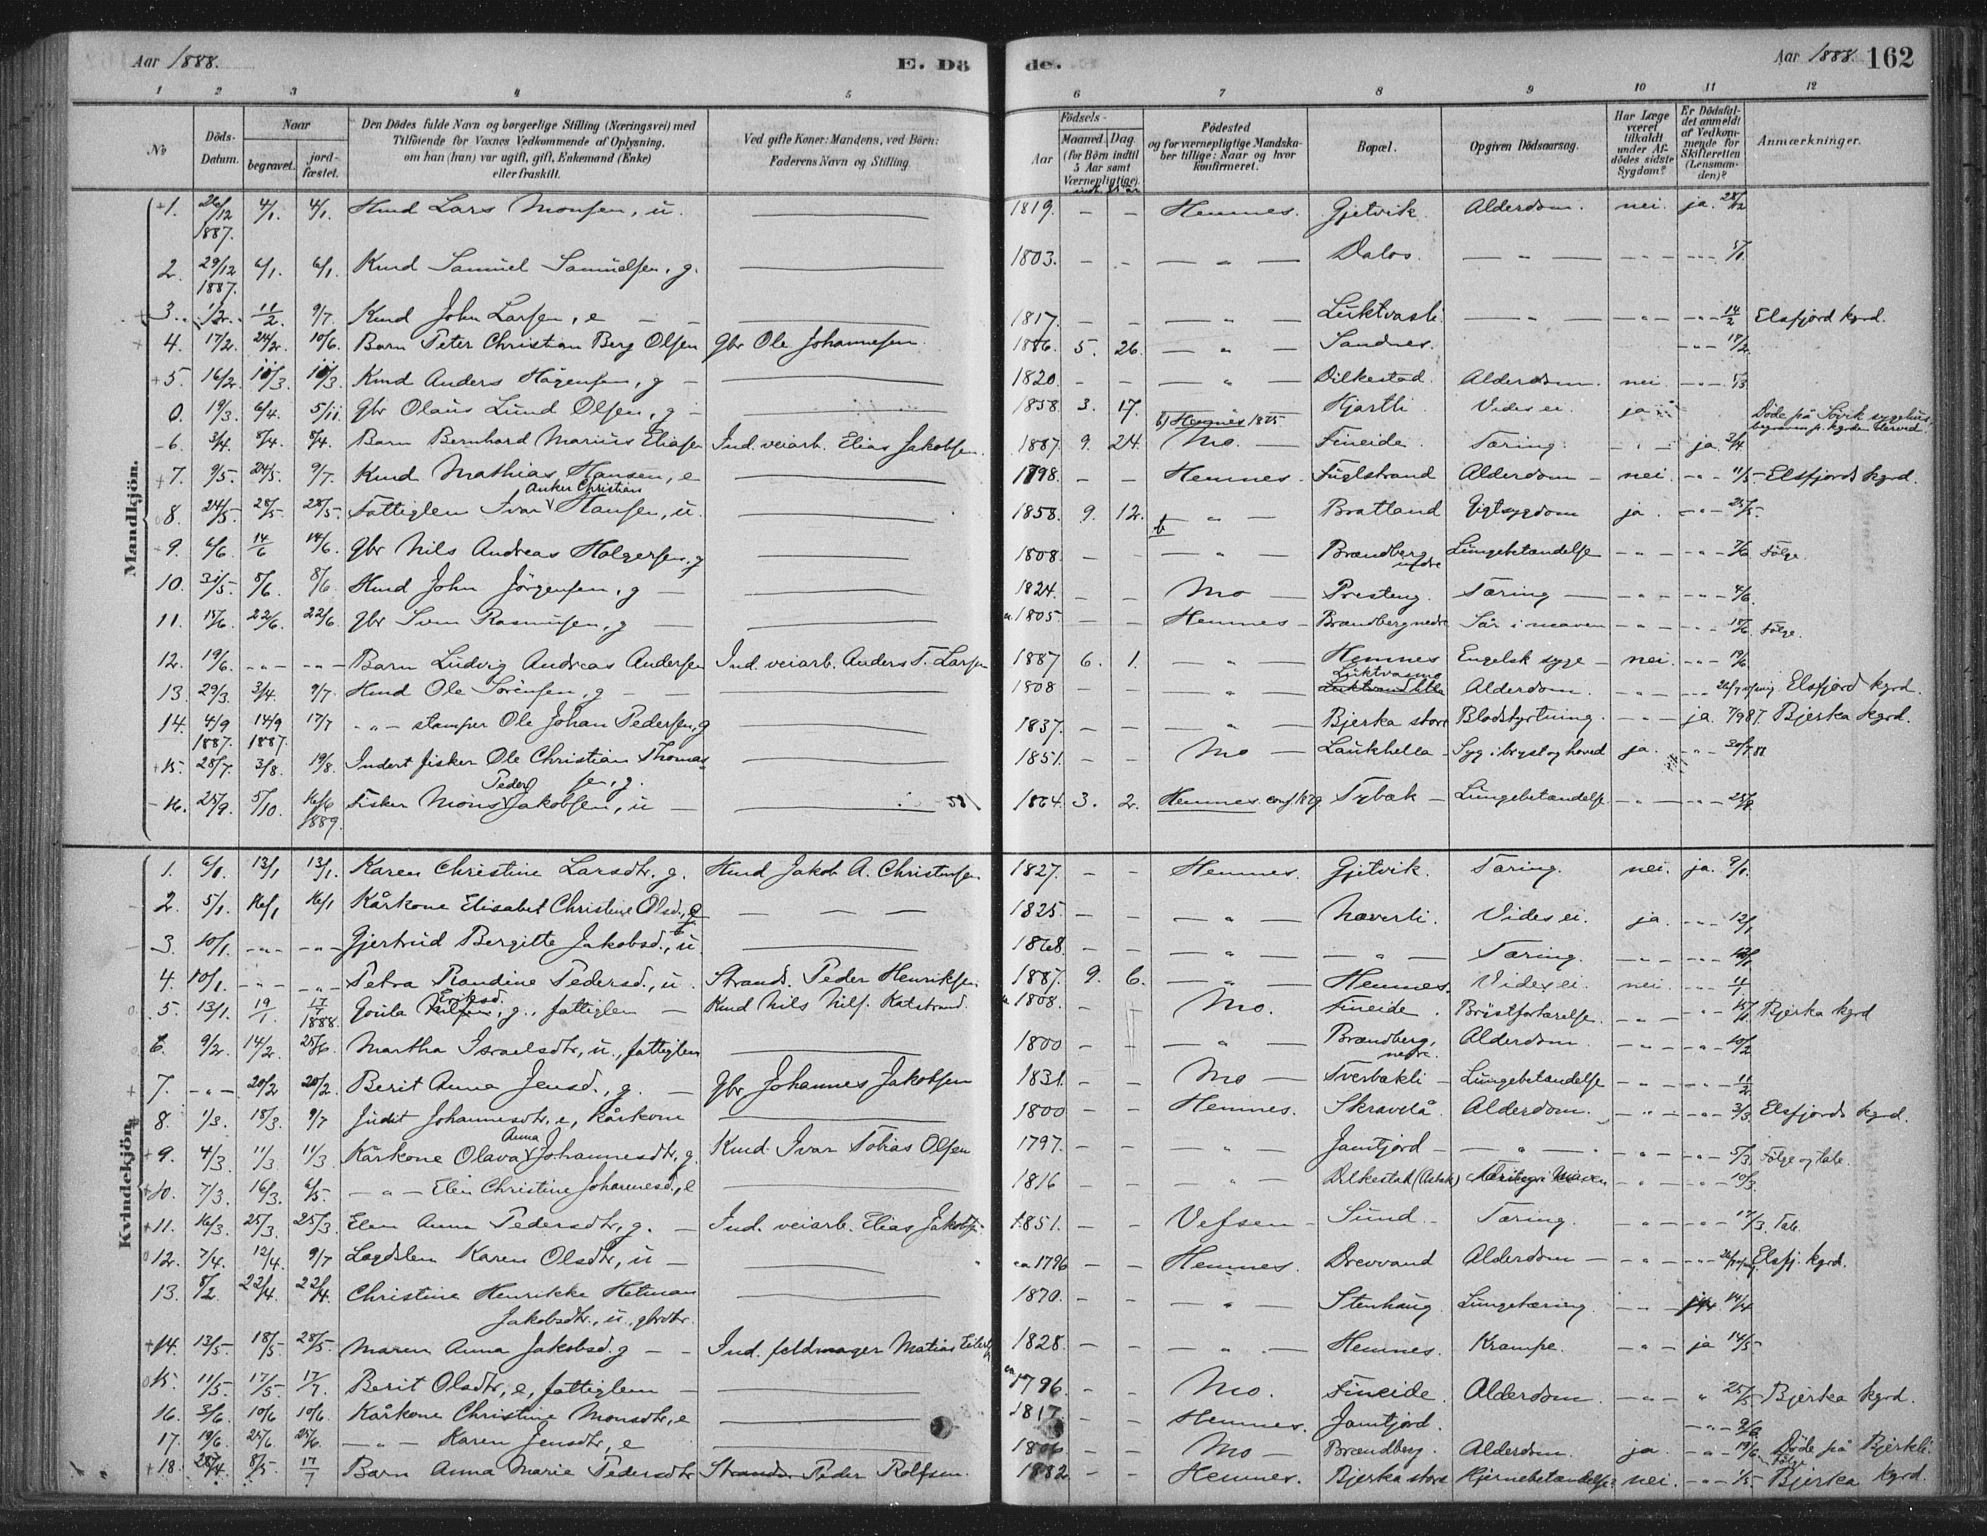 Aar 1888. E. Dö de. Aar 1888. 162
1 2 3 4 5 6 7 8 9 10 11 12
No Döds-Datum. Naar begravet. jord-fæstet. Den Dödes fulde Navn og borgerlige Stilling (Næringsvei) med Tilföiende for Voxnes Vedkommende af Oplysning, om han (hun) var ugift, gift, Enkemand (Enke) eller fraskilt. Ved gifte Koner: Mandens, ved Börn: Faderens Navn og Stilling. Födsels- Aar Maaned. Dag. (for Börn indtil 5 Aar samt Værnepligtige). Födested og for værnepligtige Mandskaber tillige: Naar og hvor konfirmeret. Bopæl. Opgiven Dödsaarsag. Har Læge været tilkaldt under Afdödes sidste Sygdom? Er Dödsfaldet anmeldt af Vedkommende for Skifteretten (Lensmanden)? Anmærkninger.
Mandkjön.
1. 26/12 1887. 4/1. 4/1. Hmd Lars Monsen, u. 1819. - - Hemnes. Gjetvik. Alderdom. nei. ja. 28/12
2. 29/12 1887. 6/1. 6/1. Kmd Samuel Samuelsen, g. 1803. - - - " - Dalos. - " - - " - - " -
3. 1/2. 11/2. 9/7. Kmd John Larsen, e 1817. - - - " - Luktvasli. - " - - " - - " - 14/2 Elsfjord kgrd.
4. 17/2. 24/2. 10/6. Barn Peter Christian Berg Olsen Gbr Ole Johannesen. 1886. 5. 26. - " - Sandnes. - " -
5. 16/2. 11/3. 11/3. Kmd Anders Hågensen, g 1820. - - - " - Dilkestad. Alderdom. nei. - " -
0. 19/3. 6/4. 5/11. Gbr Olaus Lund Olsen, g 1858. 3. 17. - " - Hemnes 1875 Kjartli. Vides ei. ja. Döde på Sövik sygehus, begraven p. kgrden dersted.
6. 3/4. 8/4. 8/4. Barn Bernhard Marius Eliasen Ind. veiarb. Elias Jakobsen. 1887. 9. 24. Mo. Fineide. Tæring. - " - ja. 3/4.
7. 9/5. 24/5. 9/7. Kmd Mathias Hansen, e 1798. - - Hemnes. Fuglstrand Alderdom nei. - " - 11/5 Elsfjords kgrd.
8. 24/5. 28/5. 28/5. Fattiglem Ivar Anker Christian Hansen, u. 1858. 9. 12. - " - Bratland Gigtsygdom ja. - " - 25/5.
9. 6/6. 14/6. 14/6. Gbr Nils Andreas Holgersen, g 1808. - - - " - Brændberg nedre Lungebetændelse - " - - " - 7/6 Fölge.
10. 31/5. 8/6. 8/6. Hmd John Jörgensen, g 1824. - - Mo Presteng. Tæring - " - - " - 4/6.
11. 15/6. 22/6. 22/6. Gbr Sven Rasmusen, g ca. 1805. - - Hemnes Brændberg nedre Sår i maven - " - - " - 18/6 Fölge.
12. 19/6. - " - - " - Barn Ludvig Andreas Andersen Ind. veiarb. Anders T. Larsen 1887 6. 1. " Hemnes Engelsk syge nei. - " - 19/6
13. 29/3. 3/4. 9/7. Hmd Ole Sörensen, g 1808 - - " Luktvasmo Alderdom. - " - - " - Elsfjord kgrd.
14. 4/9 1887. 14/9 1887. 17/7 - " - stamper Ole Johan Pedersen, g 1837. - - " Bjerka store Blodstyrtning. - " - ja. 7/9 87. Bjerka kgrd.
15. 28/7. 3/8. 19/8. Inderst fisker Ole Christian Thomassen, g. 1851. - - Mo Laukhella Syg i bryst og hoved ja. - " - 30/7 88
16. 25/9. 5/10. 16/6 1889. Fisker Mons Peder Jakobsen, u 1864. 3. 2. Hemnes. conf 1879 Tybæk Lungebetændelse - " - - " -
Kvindekjön.
1. 6/1. 13/1. 13/1. Karen Christine Larsdtr. g. Hmd Jakob A. Christensen 1827. - - Hemnes. Gjetvik. Tæring. nei. ja. 9/1.
2. 5/1. 16/1 16/1 Kårkone Elisabet Christine Olsd., g - - - 1825 - - - " - Naverli. Vides ei. ja. - " - 12/1
3. 10/1. - " - - " - Gjertrud Bergitte Jakobsd., u. 1868. - - - " - - " - Tæring. - " - - " -
4. 10/1. - " - - " - Petra Randine Pedersd., u. Strands. Peder Henriksen 1887. 9. 6. - " - Hemnes. Vides ei. nei. - " -
5. 13/1. 19/1 17/7 1888. Gorila Eriksd., g., fattiglem Kmd Nils Nils. Katstrand. 1808. - - Mo. Fineide. Bröstfortærelse. - " - - " - Bjerka kgrd
6. 9/2. 14/2. 25/6. Martha Israelsdtr, u., fattiglem 1800 - - - " - Brændberg, nedre. Alderdom. - " - - " - 10/2
7. - " - 20/2 20/2. Berit Anna Jensd., g. Gbr Johannes Jakobsen 1831. - - Mo Tverbakli Lungebetændelse - " - - " - 11/2
8. 1/3. 18/3. 9/7 Judit Johannesdtr, e, kårkone 1800 - - Hemnes. Skravelå. Alderdom. - " - - " - 3/3 Elsfjords kgrd.
9. 4/3. 11/3. 11/3. Kårkone Olava Anna Johannesdtr, g. Kmd. Ivar Tobias Olsen 1797. - - - " - Jamtjord - " - - " - - " - 5/3 Fölge og tale.
10. 7/3. 16/3. 6/5. - " - Elen Christine Johannesd., e 1816 - - - " - Dilkestad - " - - " - 10/3.
11. 16/3. 25/3. 25/3 Elen Anna Pedersdtr, g. Ind. veiarb. Elias Jakobsen. 1851. - - Vefsen Sund Tæring - " - - " - 17/3 Tale.
12. 7/4. 12/4. 9/7 Lagdslem Karen Olsdtr, u ca 1796 - - Hemnes. Drevvand Alderdom - " - - " - Elsfj. kgrd.
13. 8/2. 22/4. 22/4. Christine Henrikke Hetman Jakobsdtr., u., gbrdtr. 1870. - - - " - Stenhaug. Lungetæring. - " - 14/4
14. 13/5. 18/5. 28/5. Maren Anna Jakobsd. g Ind. feldmager Matias 1828. - - - " - Hemnes. Krampe. - " - ja 14/5
15. 11/5. 17/5. 17/7. Berit Olsdtr, e, fattiglem 1796. - - Mo. Fineide. Alderdom. - " - " 25/5 Bjerka kgrd.
16. 3/6. 10/6 10/6. Kårkone Christine Monsdtr, e 1817. - - Hemnes. Jamtjord. - " - 9/6
17. 19/6. 25/6. 25/6. - " - Karen Jensdtr, e 1806 - - Mo Brændberg. Alderdom. ja. - " - 19/6 Döde på Bjerkli. Fölge
18. 28/4. 8/5. 17/7 Barn Anna Marie Pedersdtr Strands. Peder Rolfsen. 1882 - - Hemnes. Bjerka store Hjernebetændelse nei. - " - 1/5. Bjerka kgrd.